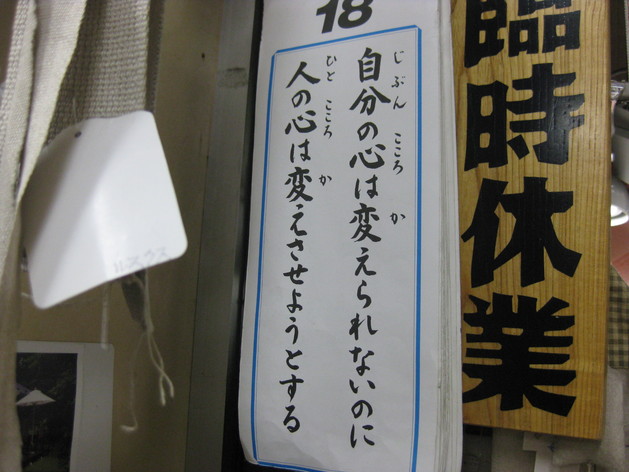 18
自分の心は変えられないのに
じぶん こころ か
人の心は変えさせようとする
ひと こころ か
臨時休業